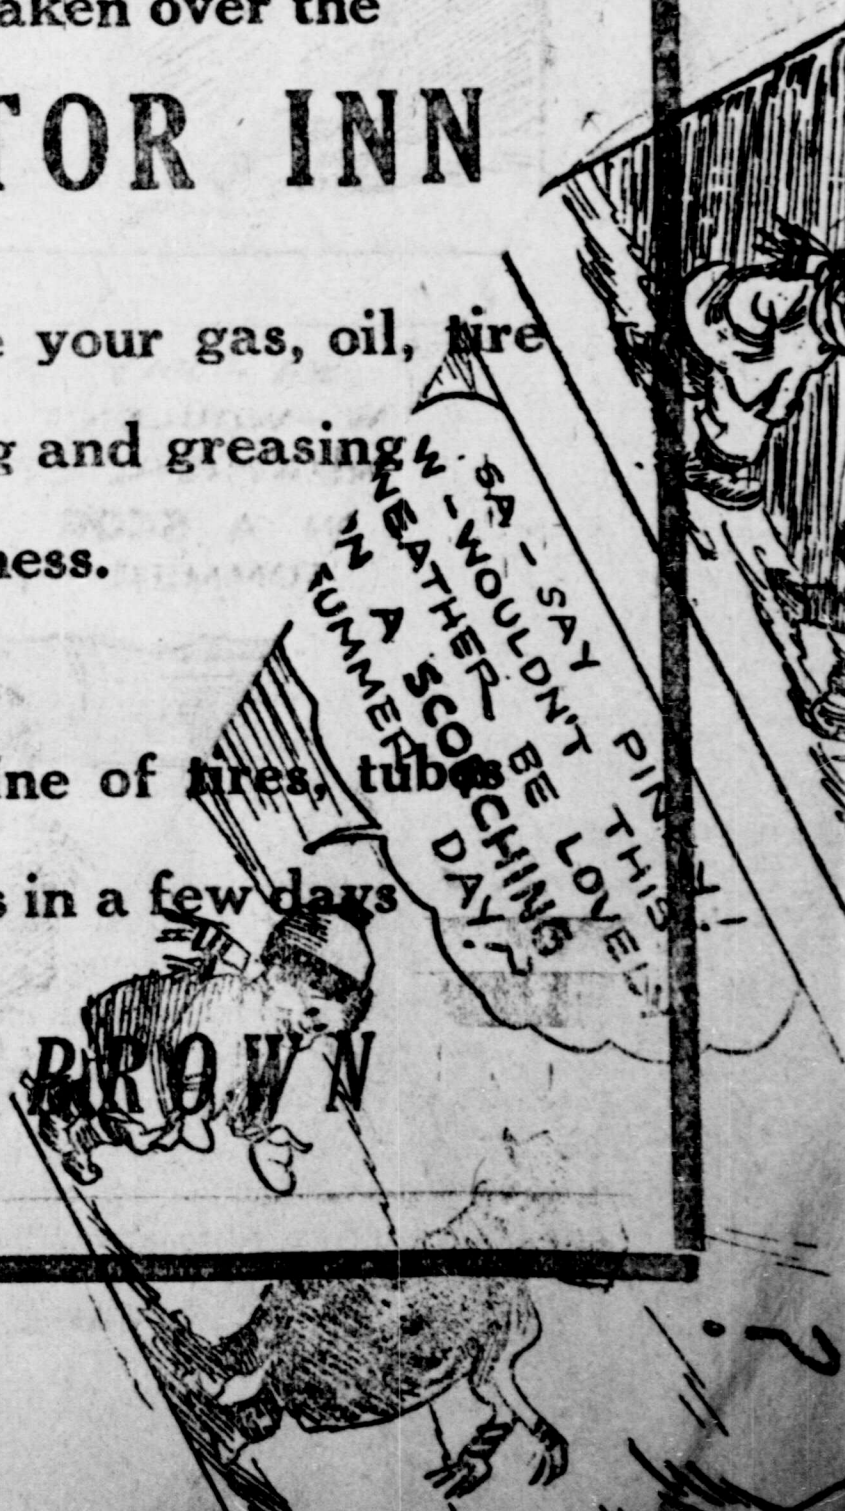 aken over the
TOR INN
e your gas, oil, tire
g and greasing
ness.
ine of tires, tubes
s in a few days
BROWN
SA - SAY PINKY!
W - WOULDN'T THIS
WEATHER BE LOVELY
IN A SCORCHING
SUMMER DAY!
?